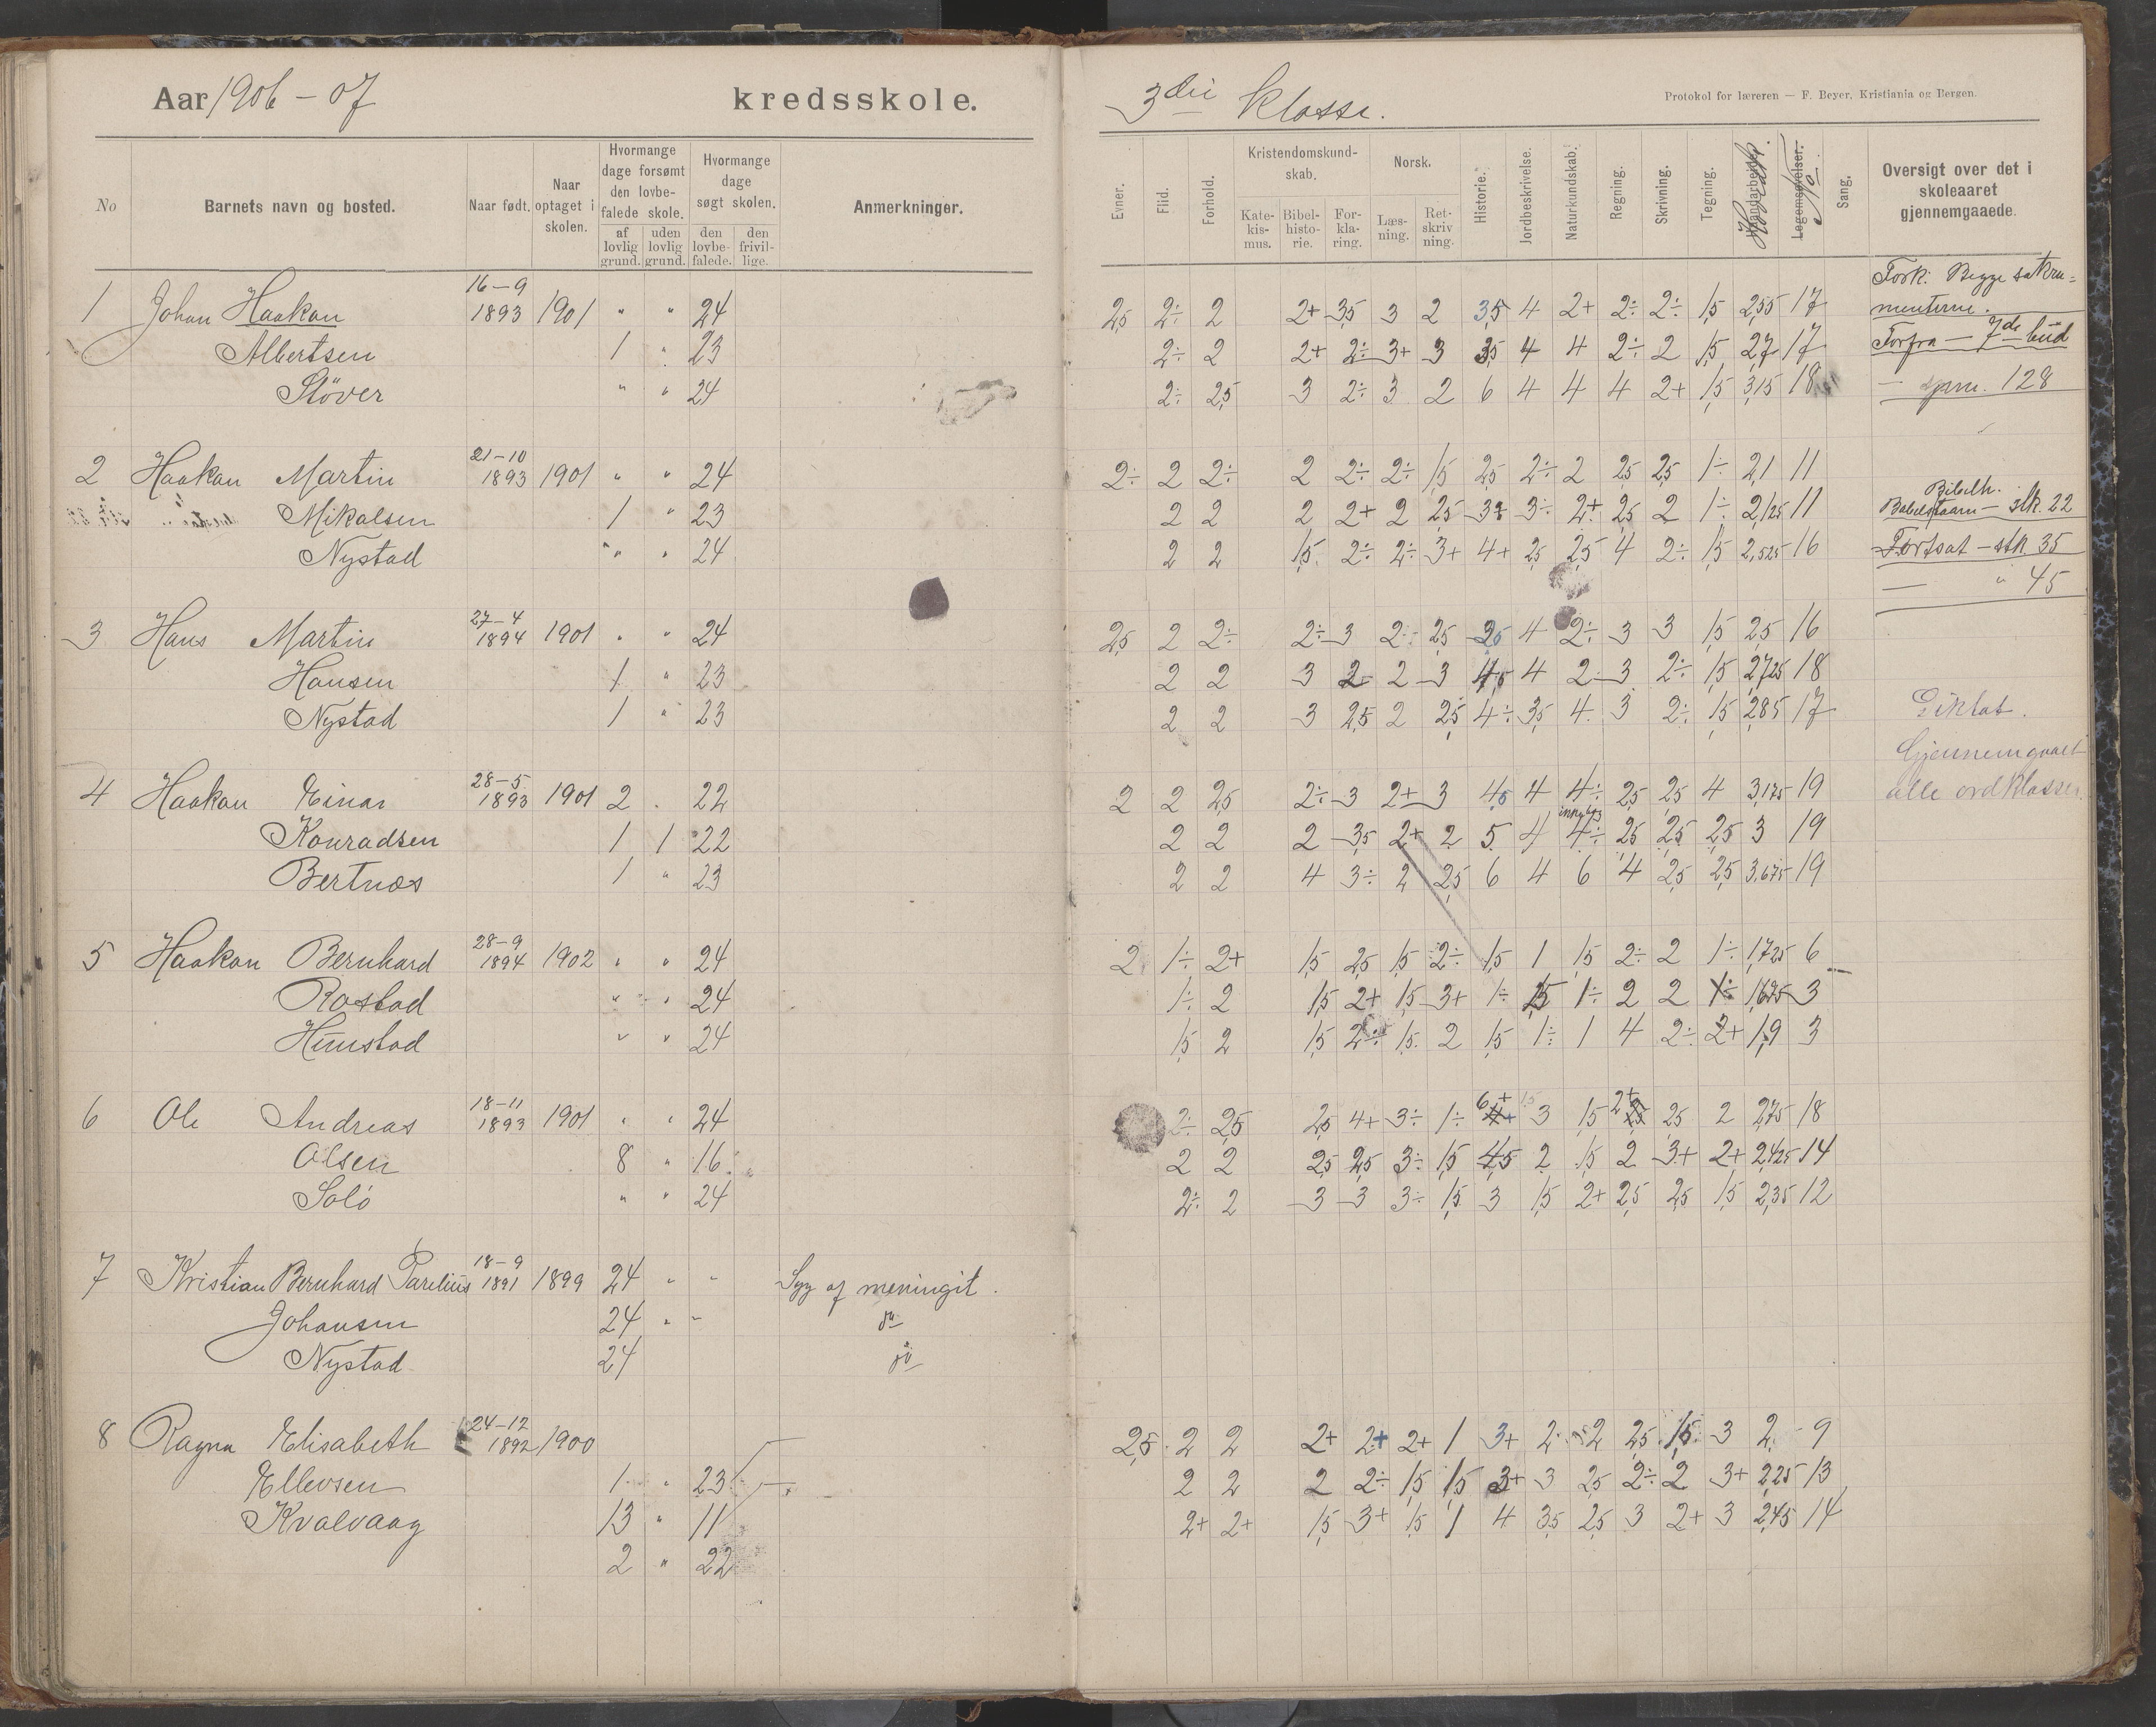 Aar 1906 – 07 kredsskole.
No Barnets navn og bosted. Naar født. Naar optaget i skolen. Hvormange dage forsømt den lovbefalede skole. af lovlig grund. uden lovlig grund. Hvormange dage søgt skolen. den lovbefalede. den frivillige. Anmerkninger.
1 Johan Haakon 16–9 1893 1901 " " 24
Albertsen 1 " 23
Støver " " 24
2 Haakon Martin 21–10 1893 1901 " " 24
Mikalsen 1 " 23
Nystad " " 24
3 Hans Martin 27–4 1894 1901 " " 24
Hansen 1 " 23
Nystad 1 " 23
4 Haakon Einar 28–5 1893 1901 2 . 22
Konradsen 1 1 22
Bertnæs 1 " 23
5 Haakon Bernhard 28–9 1894 1902 " " 24
Rostad " " 24
Hunstad " " 24
6 Ole Andreas 18–11 1893 1901 " " 24
Olsen 8 " 16
Solø " " 24
7 Kristian Bernhard Parelius 18–9 1891 1899 24 " " Syg af meningit.
Johansen 24 " " do
Nystad 24 do
8 Ragna Elisabeth 24–12 1892 1900
Ellevsen 1 " 23
Kvalvaag 13 " 11
2 " 22
3die klasse.
Protokol for læreren — F. Beyer, Kristiania og Bergen.
Evner. Flid. Forhold. Kristendomskundskab. Katekismus. Bibelhistorie. Forklaring. Norsk. Læsning. Retskrivning. Historie. Jordbeskrivelse. Naturkundskab. Regning. Skrivning. Tegning. Haandarbeide. Legemsøvelser. No. Sang. Oversigt over det i skoleaaret gjennemgaaede.
2,5 2÷ 2 2+ 3,5 3 2 3,5 4 2+ 2÷ 2÷ 1,5 2,55 17
2÷ 2 2+ 2÷ 3+ 3 3,5 4 4 2÷ 2 1,5 2,7 17
2÷ 2,5 3 2÷ 3 2 6 4 4 4 2+ 1,5 3,15 18
2÷ 2 2÷ 2 2÷ 2÷ 1,5 2,5 2÷ 2 2,5 2,5 1÷ 2,1 11
2 2 2 2+ 2 2,5 3÷ 3÷ 2+ 2,5 2 1÷ 2,125 11
2 2 1,5 2÷ 2÷ 3+ 4+ 2,5 2,5 4 2÷ 1,5 2,525 16
2,5 2 2÷ 2÷ 3 2÷ 2,5 3,5 4 2÷ 3 3 1,5 2,5 16
2 2 3 2 2 3 4,5 4 2 3 2÷ 1,5 2,725 18
2 2 3 2,5 2 2,5 4÷ 3,5 4 3 2÷ 1,5 2,85 17
2 2 2,5 2÷ 3 2+ 3 4,5 4 4÷ 2,5 2,5 4 3,175 19
2 2 2 3,5 2+ 2 5 4 4÷ 2,5 2,5 2,5 3 19
2 2 4 3÷ 2 2,5 6 4 6 4 2,5 2,5 3,675 19
2 1÷ 2+ 1,5 2,5 1,5 2÷ 1,5 1 1,5 2÷ 2 1÷ 1,725 6
1÷ 2 1,5 2+ 1,5 3+ 1÷ 1,5 1÷ 2 2 1÷ 1,675 3
1,5 2 1,5 2÷ 1,5 2 1,5 1÷ 1 4 2÷ 2+ 1,9 3
2÷ 2,5 2,5 4+ 3÷ 1÷ 6+ 3 1,5 2+ 2,5 2 2,75 18
2 2 2,5 2,5 3÷ 1,5 4,5 2 1,5 2 3+ 2+ 2,425 14
2÷ 2 3 3 3÷ 1,5 3 1,5 2+ 2,5 2,5 1,5 2,35 12
2,5 2 2 2+ 2+ 2+ 1 3+ 2 2 2,5 1,5 3 2 9
2 2 2 2÷ 1,5 1,5 3+ 3 2,5 2÷ 2 3+ 2,25 13
2+ 2+ 1,5 3+ 1,5 1 4 3,5 2,5 3 2+ 3 2,45 14
Fork: Begge sakra=
menterne.
Forfra — 7de bud
— spm. 128
Bibelh.
Babelstaarn — stk. 22
Fortsat — stk. 35
— " 45
Diktat.
Gjennemgaaet
alle ordklasser.